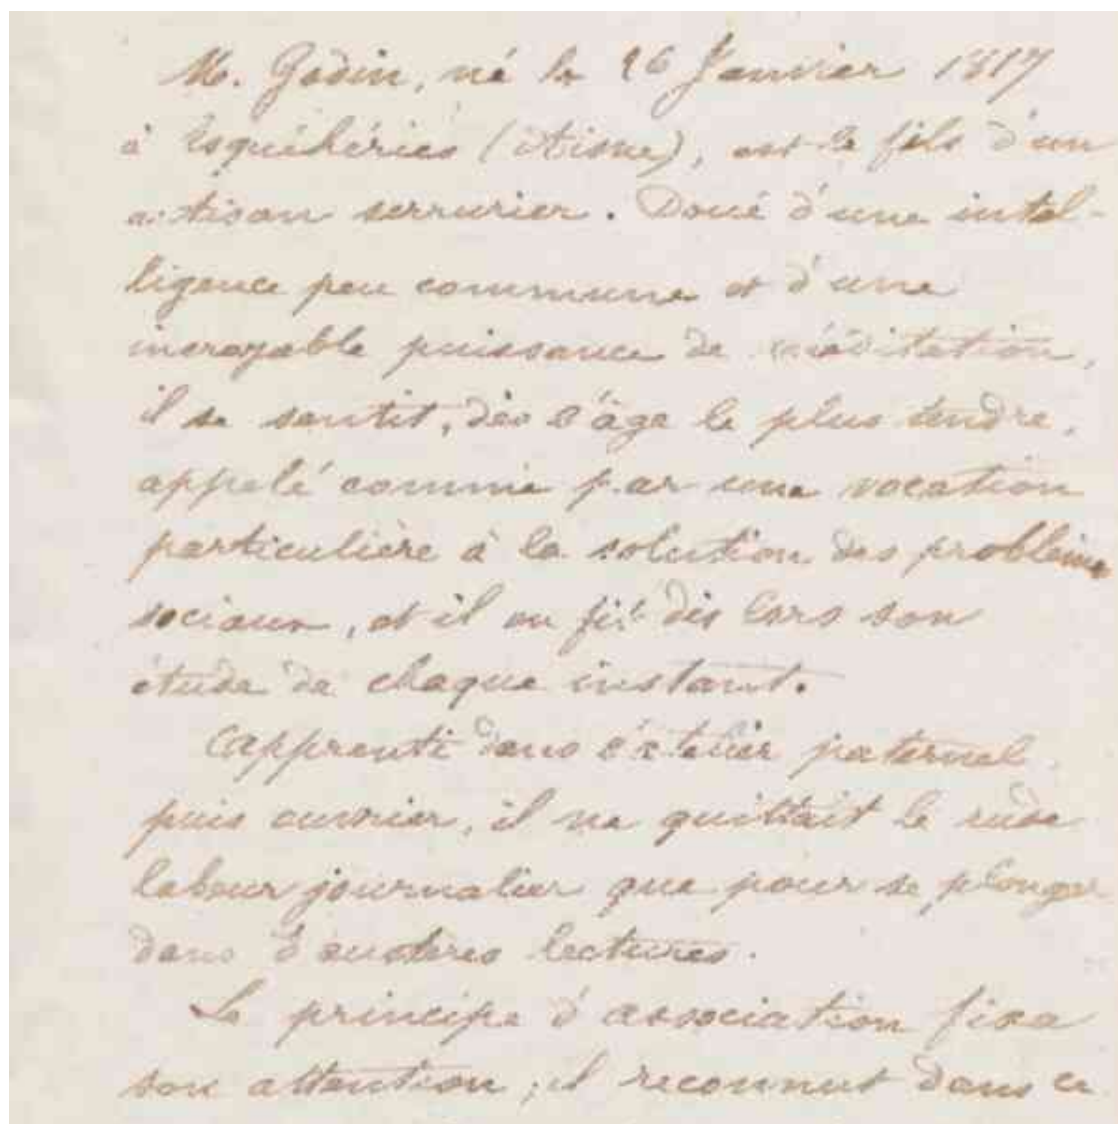 M. Godin, né le 26 Janvier 1817
à Esquéhéries (Aisne), est le fils d'un
artisan serrurier. Doué d'une intel-
ligence peu commune et d'une
incroyable puissance de méditation,
il se sentit, dès l'âge le plus tendre,
appelé comme par une vocation
particulière à la solution des problèmes
sociaux, et il en fit dès lors son
étude de chaque instant.
Apprenti dans l'atelier paternel
puis ouvrier, il ne quittait le rude
labeur journalier que pour se plonger
dans d'austères lectures.
Le principe d'association fixa
son attention; il reconnut dans ce